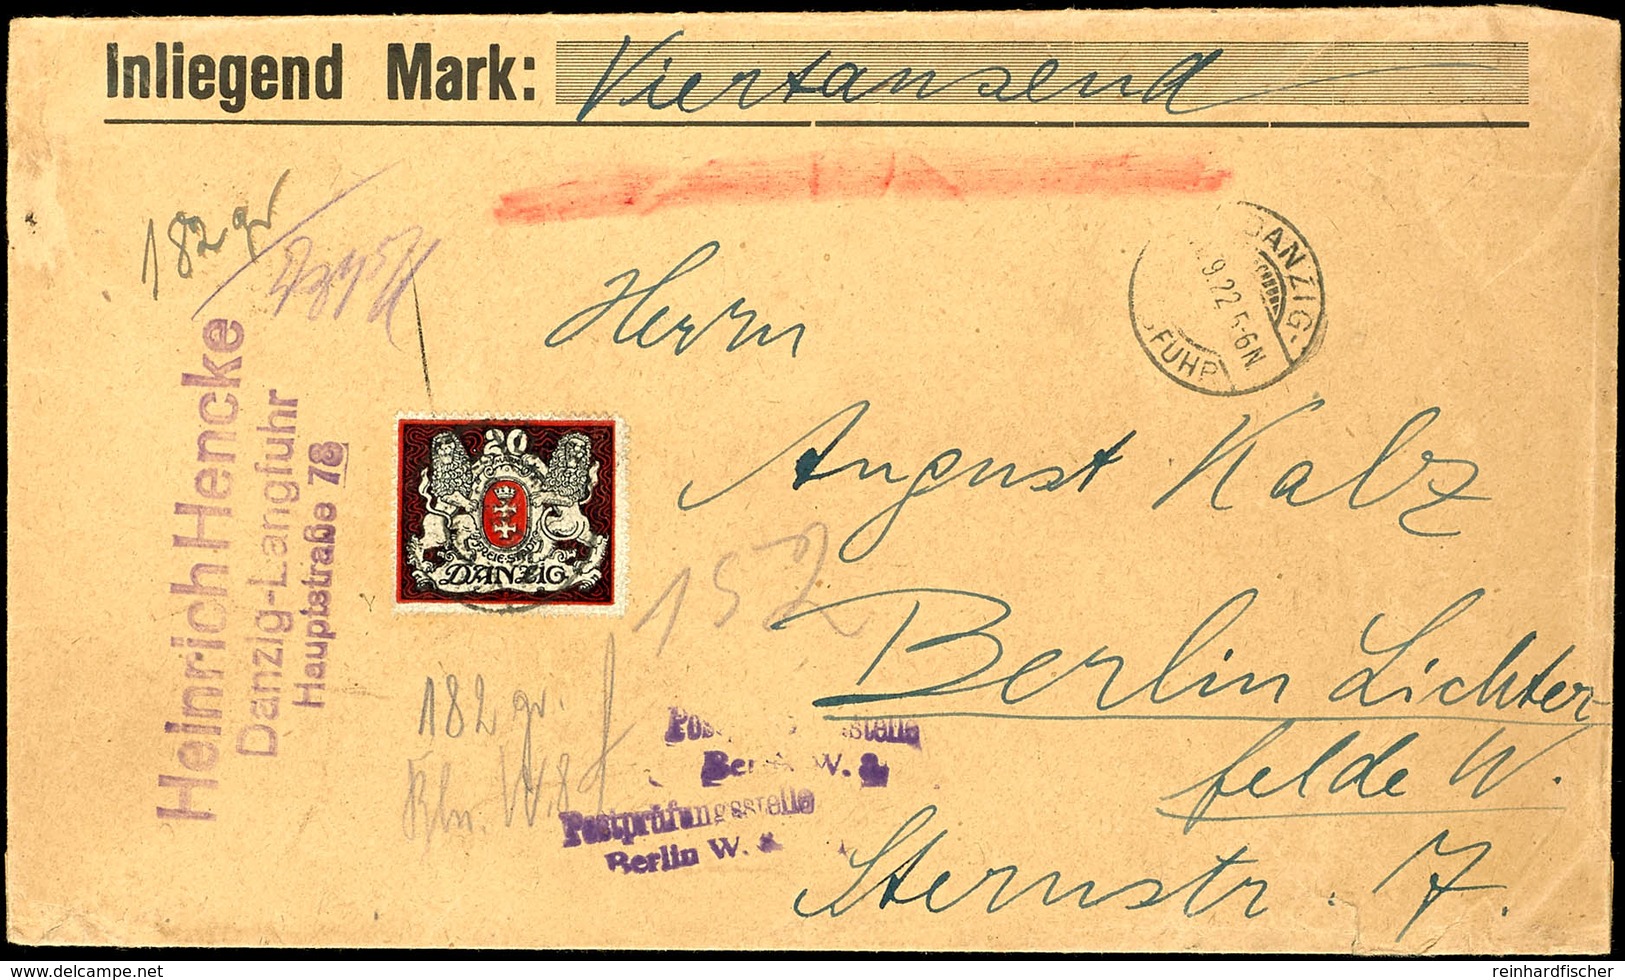 Inliegend Mark: Viertausend
182 gr
DANZIG-
9.22 5-6N
FUHR
Heinrich Hencke
Danzig-Langfuhr
Hauptstraße 78
Herrn
August Kalz
Berlin Lichter-
felde W.
Sternstr. 7.
20
FREIE STADT
DANZIG
152
182 gr.
Bln. W. 8
Berlin W. 8
Postprüfungsstelle
Berlin W. 8
reinhardfischer